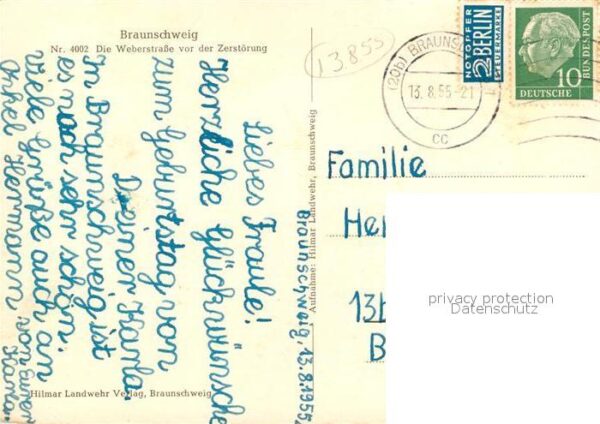 Braunschweig
Nr. 4002 Die Weberstraße vor der Zerstörung
13855
NOTOPFER
2 BERLIN
STEUERMARKE
10
DEUTSCHE
BUNDESPOST
(20b) BRAUNSCH
13.8.55-21
CC
Braunschweig, 13.8.1955,
Liebes Traule!
Herzliche Glückwünsche
zum Geburtstag von
Deiner Karla.
Im Braunschweig ist
es noch sehr schön.
Viele Grüße auch an
Onkel Hermann von Eurer
Karla.
Aufnahme: Hilmar Landwehr, Braunschweig
Familie
He
13b
B
privacy protection
Datenschutz
Hilmar Landwehr Verlag, Braunschweig